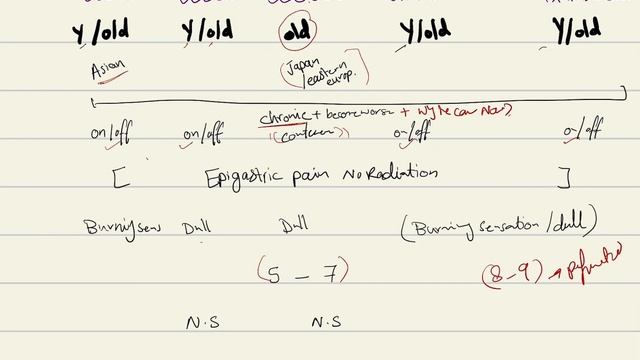 Y/old Y/old old Y/old Y/old
Asian (Japan
/eastern
europ.)
chronic + become worse +
on/off on/off on/off o/off
[ Epigastric pain No Radiation ]
Burning sens Dull Dull (Burning sensation/dull)
(5 – 7) (8–9) →
N.S N.S